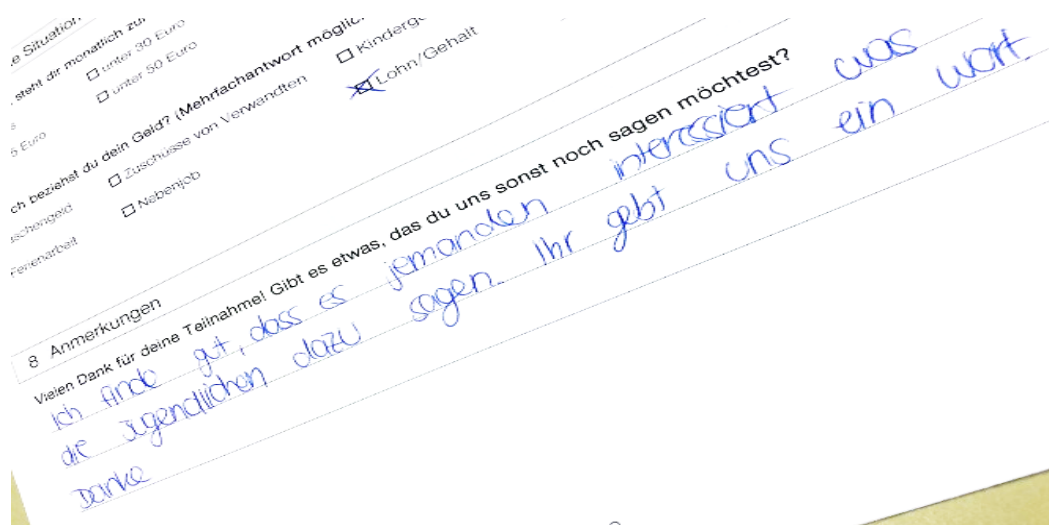 e Situation
steht dir monatlich zur
unter 30 Euro
unter 50 Euro
5 Euro
ch beziehst du dein Geld? (Mehrfachantwort möglic
schengeld
Zuschüsse von Verwandten
Kinderge
Ferienarbeit
Nebenjob
Lohn/Gehalt
8 Anmerkungen
Vielen Dank für deine Teilnahme! Gibt es etwas, das du uns sonst noch sagen möchtest?
Ich finde gut, dass es jemanden interessiert was
die Jugendlichen dazu sagen Ihr gebt uns ein wort
Danke